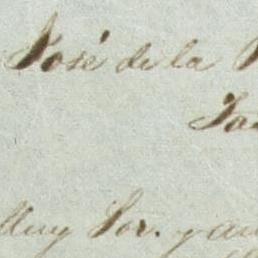 José de la
Muy Sor. y